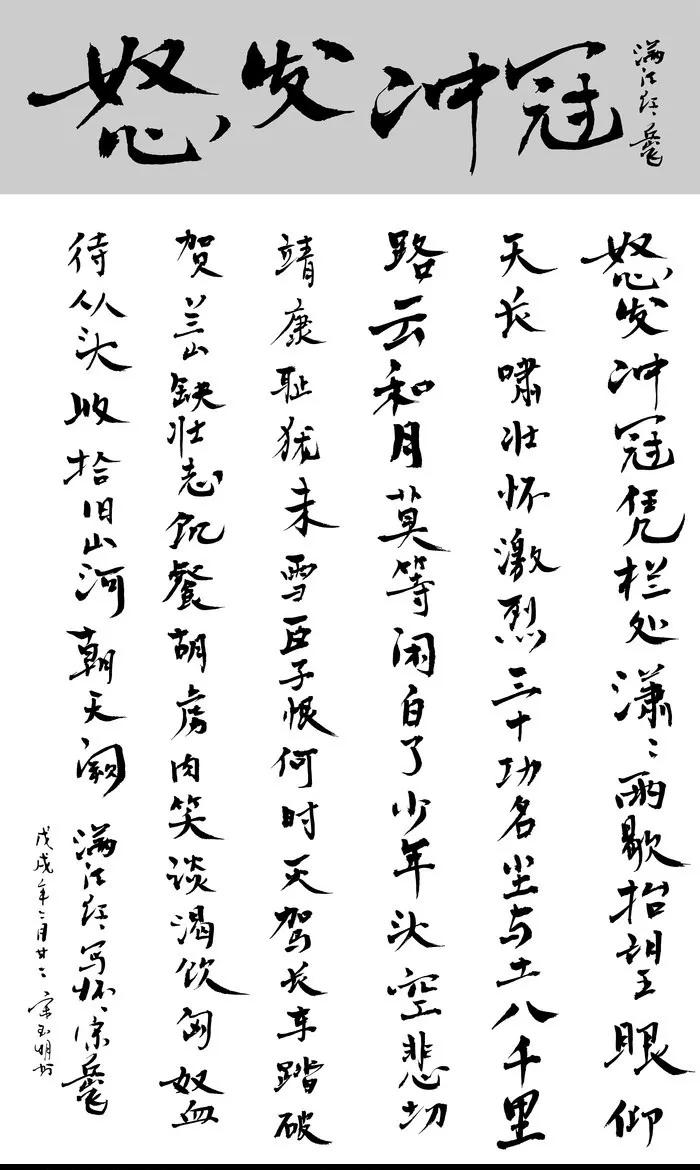 怒发冲冠
满江红、岳飞
怒发冲冠凭栏处潇〻雨歇抬望眼仰
天长啸壮怀激烈三十功名尘与土八千里
路云和月莫等闲白了少年头空悲切
靖康耻犹未雪臣子恨何时灭驾长车踏破
贺兰山缺壮志饥餐胡虏肉笑谈渴饮匈奴血
待从头收拾旧山河朝天阙
满江红、写怀、宋岳飞
戊戌年二月廿二宋玉明书